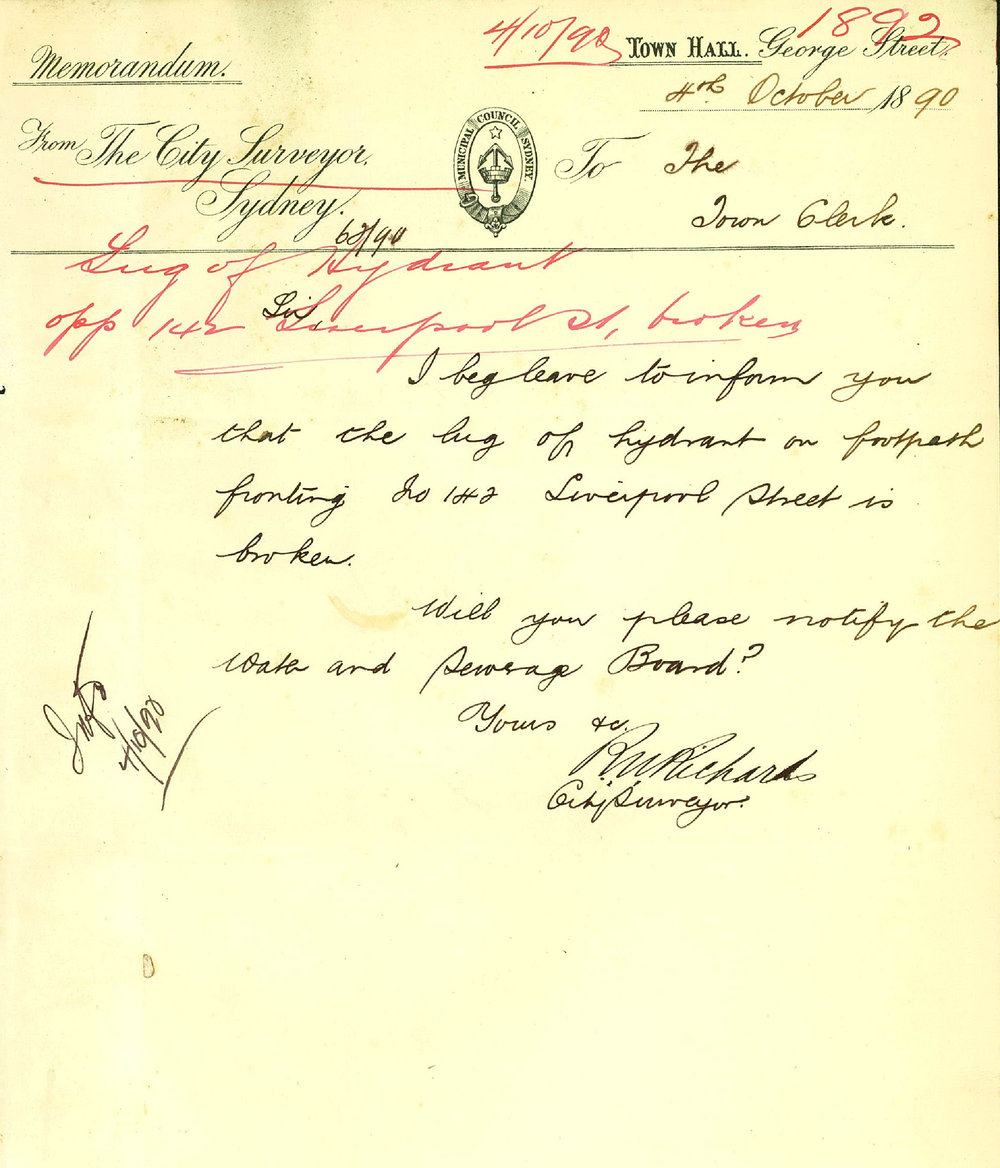 4/10/90 1892
TOWN HALL. George Street.
Memorandum.
4th October 1890
From The City Surveyor.
Sydney.
MUNICIPAL COUNCIL SYDNEY.
To The
Town Clerk.
Lug of Hydrant
opp 142 Liverpool St, broken
I beg leave to inform you
that the lug of hydrant on footpath
fronting No 142 Liverpool Street is
broken.
Will you please notify the
Water and Sewerage Board?
Yours &c.
R W Richards
City Surveyor.
4/10/90